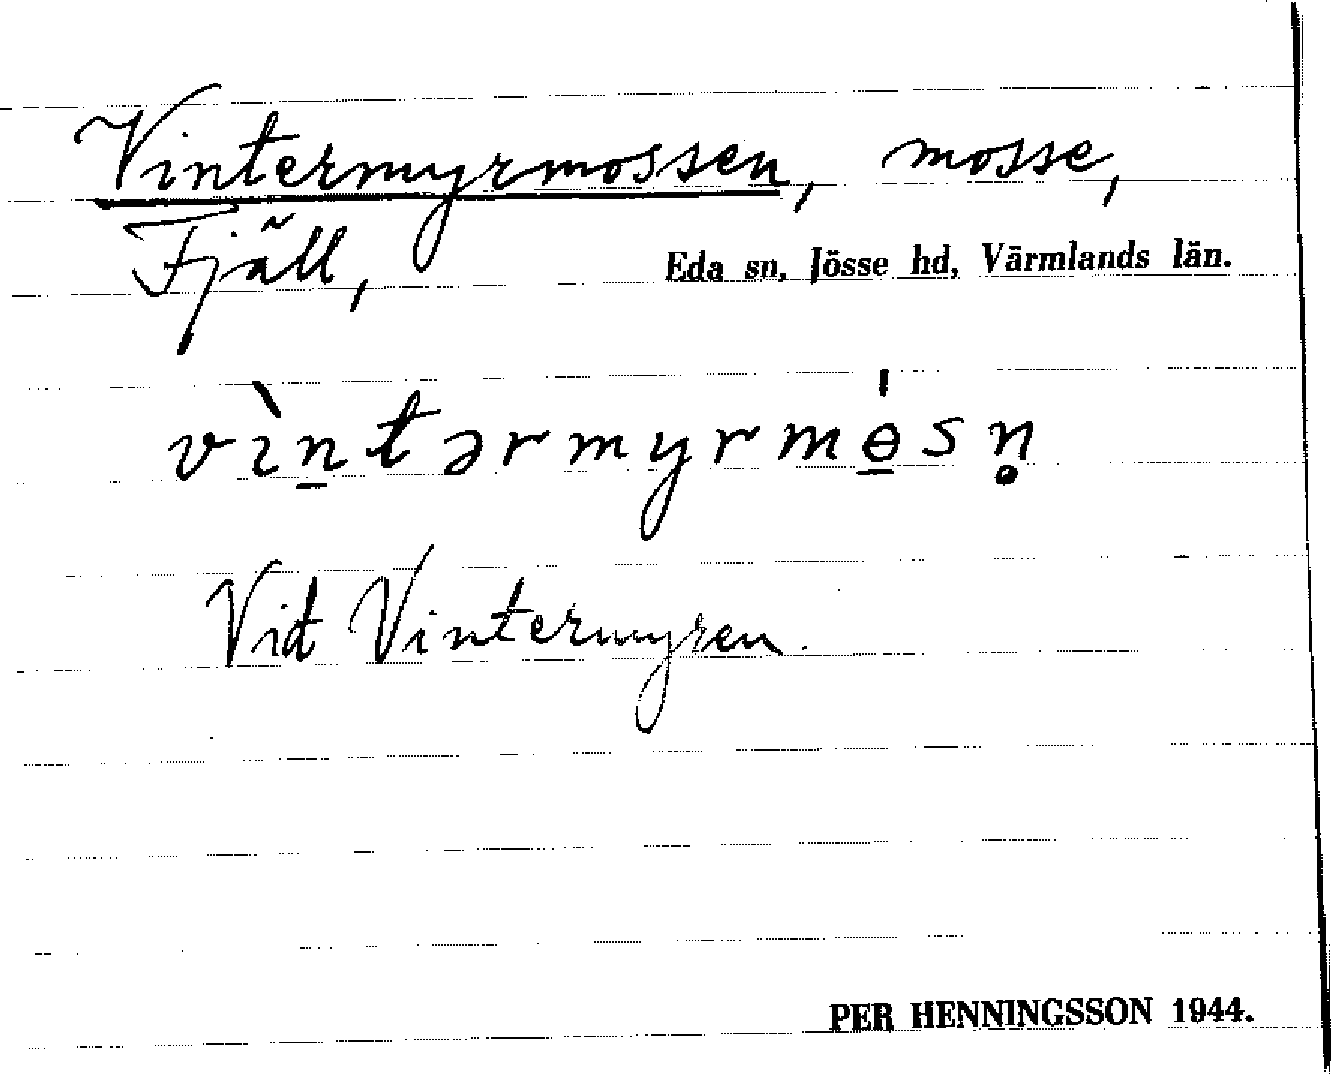 Vintermyrmossen, mosse,
Fjäll,
Eda sn, Jösse hd, Värmlands län.
vìn̠tərmyrmɵ̠́sn̥
Vid Vintermyren.
PER HENNINGSSON 1944.